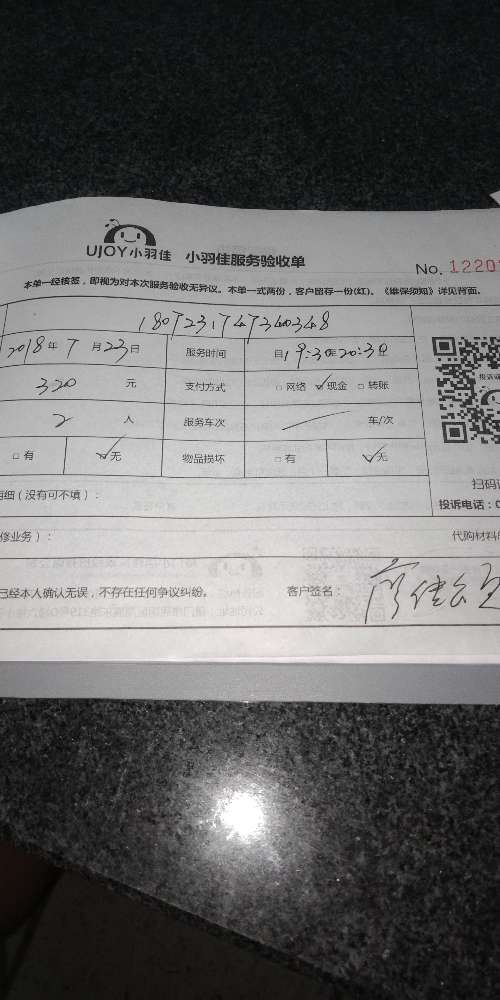 UJOY小羽佳 小羽佳服务验收单
No. 12201
本单一经核签，即视为对本次服务验收无异议。本单一式两份，客户留存一份(红)。《维保须知》详见背面。
1807231747340348
2018年7月23日 服务时间 自19:30至20:30
320元 支付方式 □网络 ☑现金 □转账
2人 服务车次 / 车/次
□有 ☑无 物品损坏 □有 ☑无
明细（没有可不填）： 扫码
投诉电话：0
修业务）： 代购材料
已经本人确认无误，不存在任何争议纠纷。 客户签名：